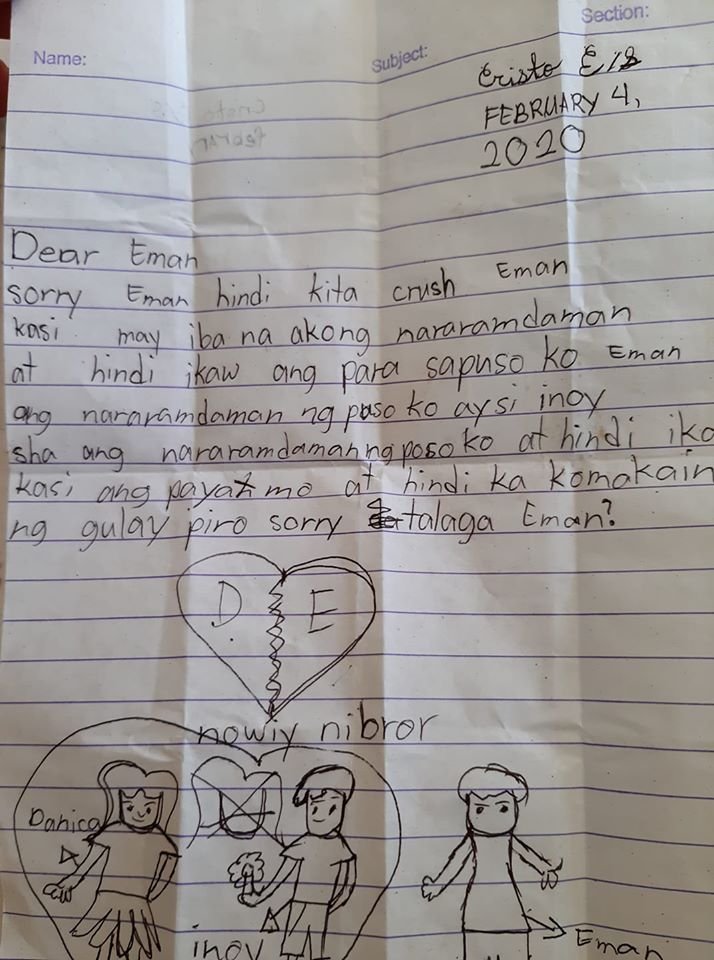 Section:
Name:
Subject:
Cristo E/S
FEBRUARY 4,
2020
Dear Eman
sorry Eman hindi kita crush Eman
kasi may iba na akong nararamdaman
at hindi ikaw ang para sapuso ko Eman
ang nararamdaman ng puso ko aysi inoy
sha ang nararamdaman ng poso ko at hindi ika
kasi ang payat mo at hindi ka komakain
ng gulay piro sorry talaga Eman?
D E
nowiy nibror
Danica
inoy
Eman